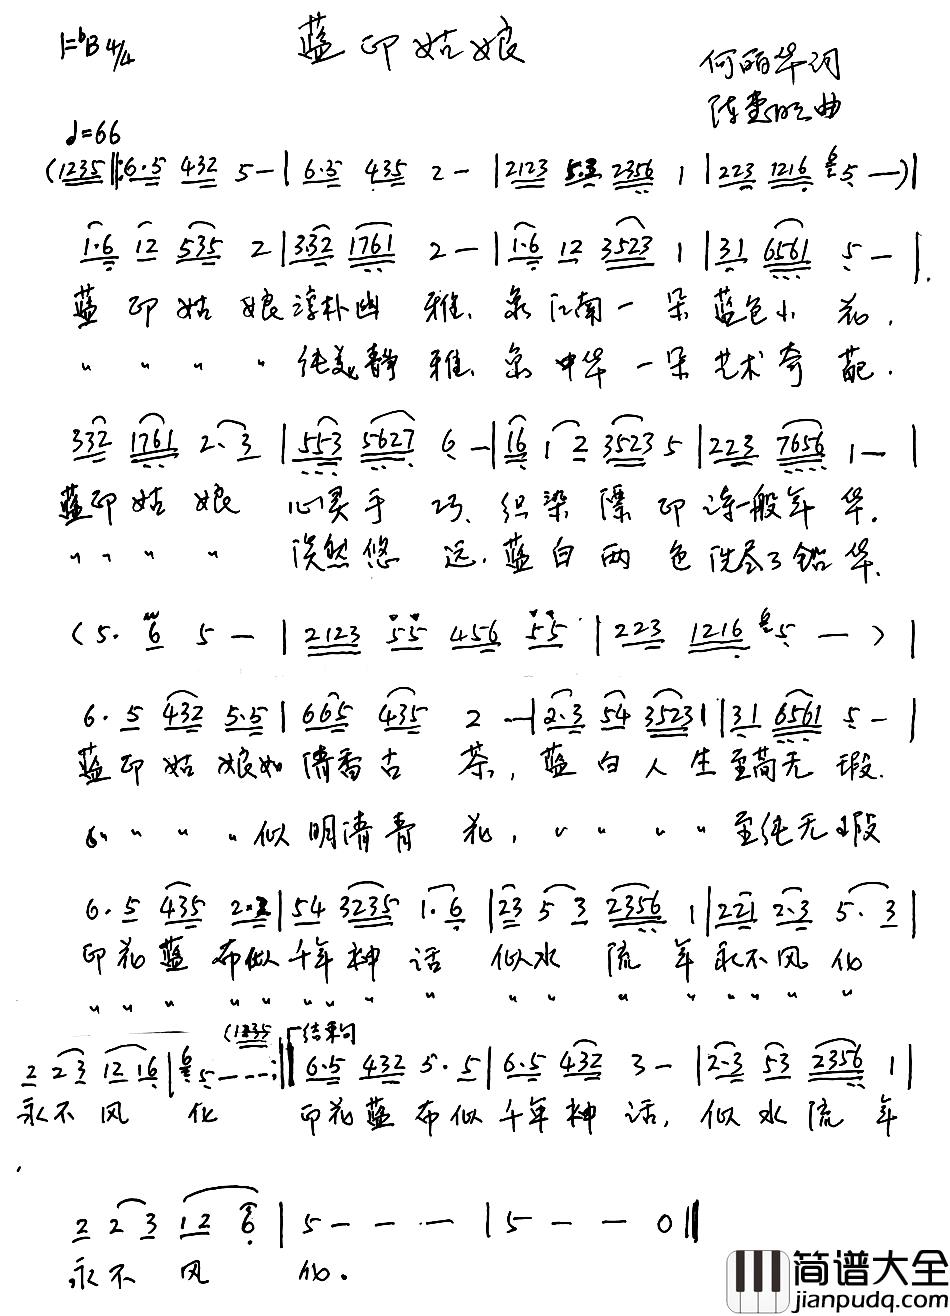 1=♭B 4/4
蓝印姑娘
何丽华词
♩=66
陈 曲
(1235‖:6·5 432 5-|6·5 435 2-|2123 5·3 2356 1|223 1216 5—)|
1·6 12 535 2|332 1761 2-|1·6 12 3523 1|31 6561 5-|
蓝印姑娘淳朴幽雅,象江南一朵蓝色小花,
" " " " 纯美静雅,象中华一朵艺术奇葩.
332 1761 2·3|553 5627 6-|16 12 3523 5|223 7656 1—|
蓝印姑娘 心灵手巧,织染漂印诗一般年华.
" " " " 淡然悠远,蓝白两色洗尽了铅华.
(5·6 5—|2123 55 456 55|223 1216 5—)|
6·5 432 5·5|665 435 2—|2·3 54 3523 1|31 6561 5-|
蓝印姑娘如清香古茶,蓝白人生至高无瑕.
" " " " 似明清青花," " " " 至纯无瑕
6·5 435 2·2|54 3235 1·6|23 5 3 2356 1|221 2·3 5·3|
印花蓝布似千年神话 似水流年永不风化
" " " " " " " " " " " " " " " " " "
(1235 结束句
2 2 3 12 16|5---:‖6·5 432 5·5|6·5 432 3-|2·3 53 2356 1|
永不风化 印花蓝布似千年神话,似水流年
2 2 3 12 6|5---|5--0‖
永不风化.
简谱大全
jianpudq.com